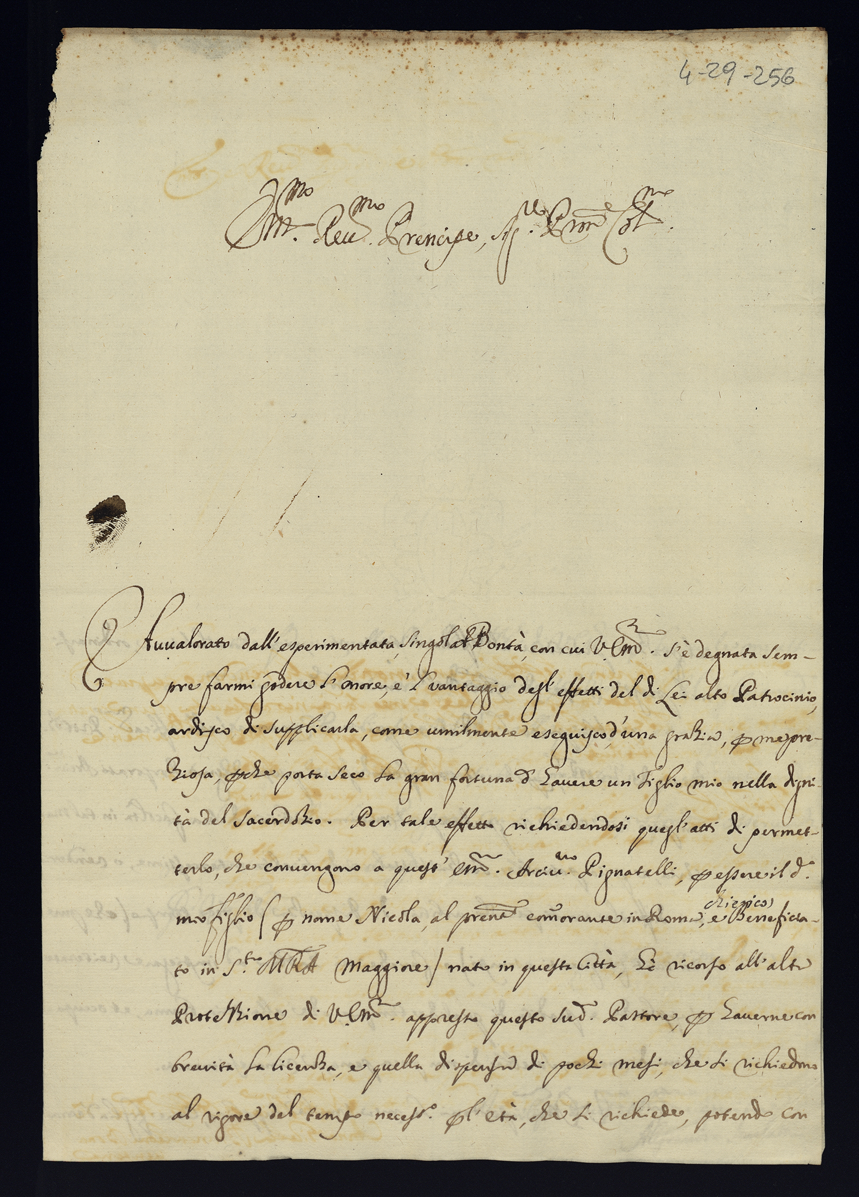 4-29-256
Em.mo Reu.mo Prencipe, Sig.re P.rone Col.mo
Auualorato dall'esperimentata, singolar Bontà, con cui V. Em.za s'è degnata sem-
pre farmi godere l'onore, e'l vantaggio degl'effetti del di Lei alto Patrocinio,
ardisco di supplicarla, come umilmente eseguisco, d'una grazia, p me pre-
ziosa, pche porta seco la gran fortuna d'hauere un Figlio mio nella digni-
tà del sacerdozio. Per tale effetto richiedendosi quegl'atti di permet-
terlo, che conuengono a quest' Em.mo Arciu.uo Pignatelli, p essere il d.o
mio figlio (p nome Nicola, al pren.te com̄orante in Roma, chierico, e Beneficia-
to in S.ta MRA Maggiore) nato in questa Città, hò ricorso all'alta
Protezzione di V. Em.za appresso questo sud.o Pastore, p hauerne con
breuità la licenza, e quella dispensa di pochi mesi, che si richiedono
al rigore del tempo necess.o p l'età, che si richiede, potendo con